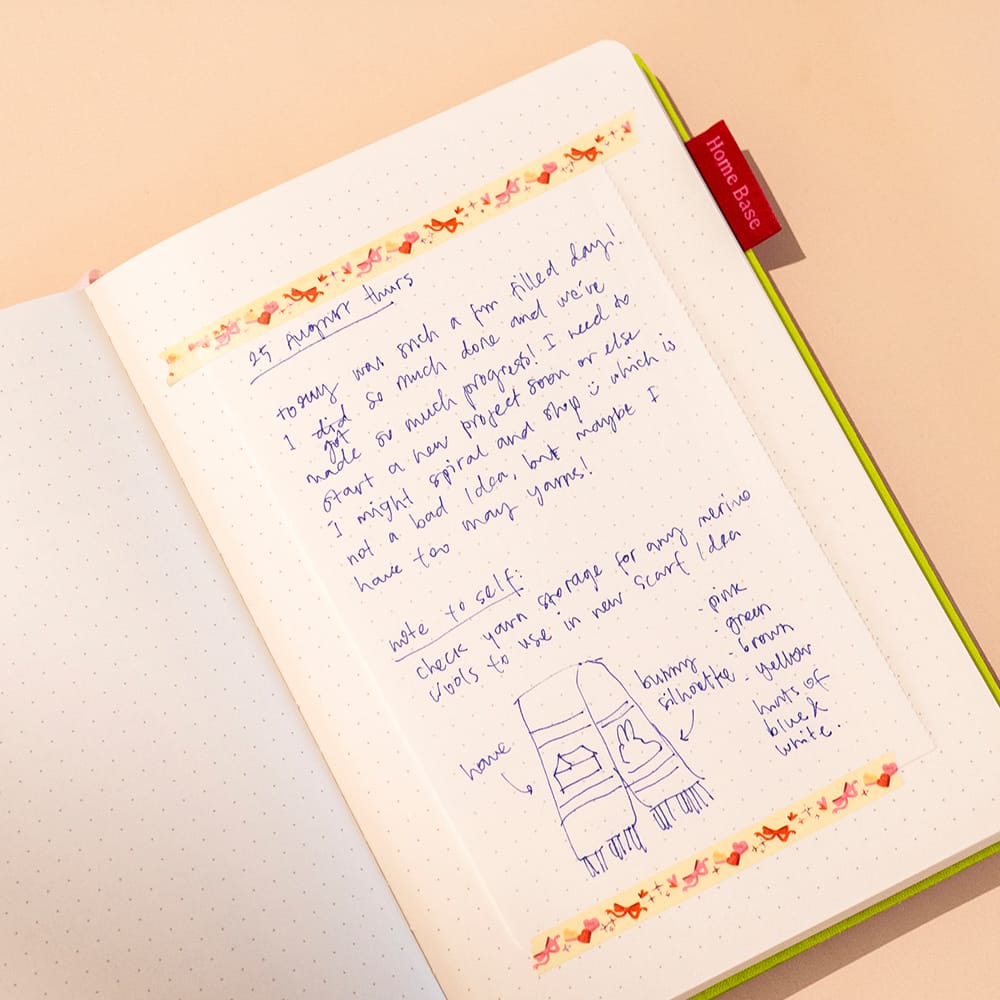 Home Base
25 August thurs
today was such a fun filled day!
I did so much done and we've
got
made so much progress! I need to
start a new project soon or else
I might spiral and shop which is
not a bad idea, but maybe I
have too many yarns!
note to self:
check yarn storage for any merino
wools to use in new scarf idea
- pink
- green
- brown
- yellow
hints of
blue &
white.
bunny
silhouette
home